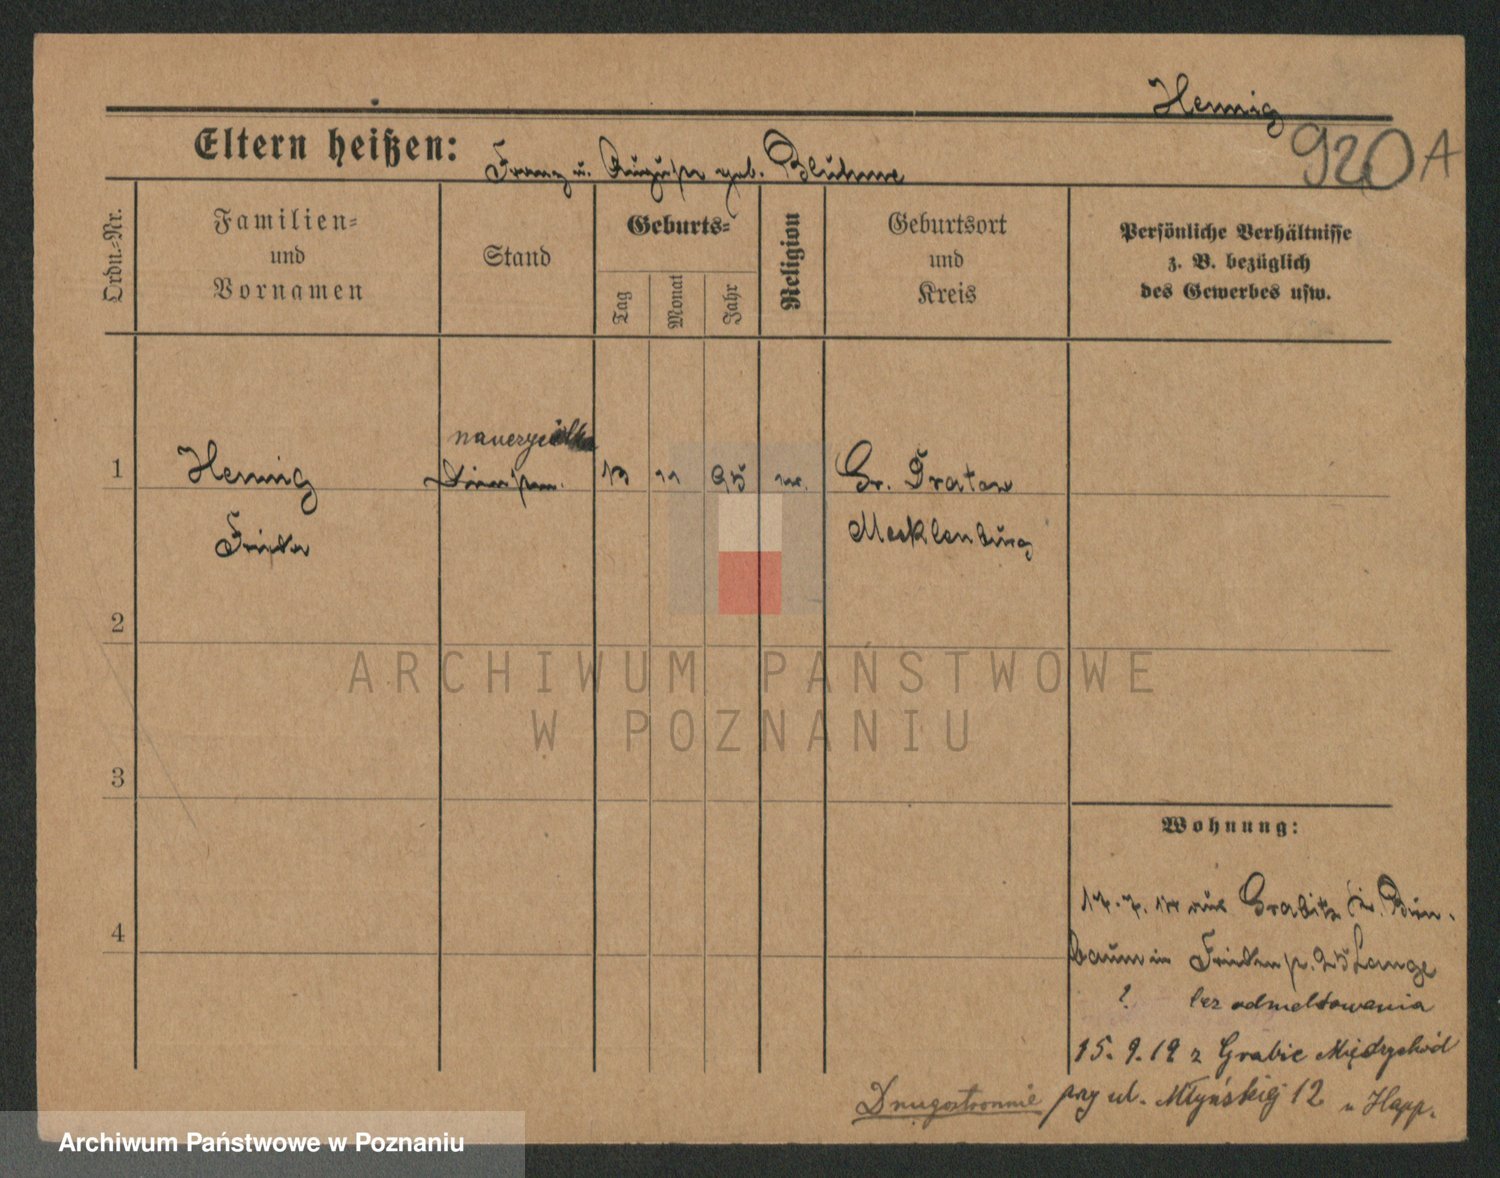 Hennig
920 A
Eltern heißen: Franz u. Auguste geb. Blühme
Ordn.-Nr.
Familien-
und
Vornamen
Stand
Geburts-
Tag
Monat
Jahr
Religion
Geburtsort
und
Kreis
Persönliche Verhältnisse
z. B. bezüglich
des Gewerbes usw.
nauczycielka
1
Hennig
13
11
95
ev.
Gr. Tratow
Frieda
Mecklenburg
2
3
4
Wohnung:
17. 7. aus Grabitz Kr. Birn-
baum in Frieden 25 Lange
? bez odmeldowania
15. 9. 19 z Grabic Międzychód
Drugostronnie przy ul. Młyńskiej 12 u Happ.
ARCHIWUM PAŃSTWOWE
W POZNANIU
Archiwum Państwowe w Poznaniu